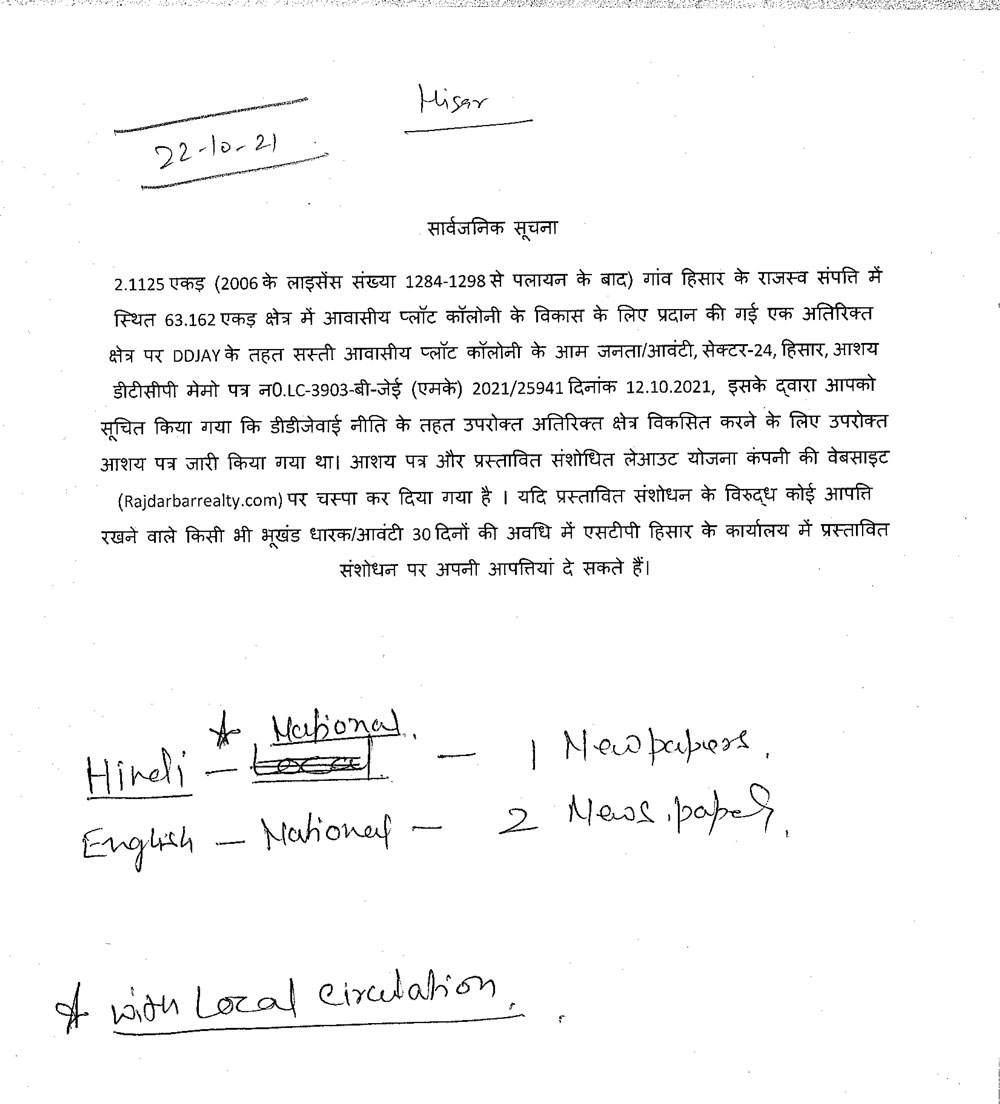 Hisar
22-10-21
सार्वजनिक सूचना
2.1125 एकड़ (2006 के लाइसेंस संख्या 1284-1298 से पलायन के बाद) गांव हिसार के राजस्व संपत्ति में
स्थित 63.162 एकड़ क्षेत्र में आवासीय प्लॉट कॉलोनी के विकास के लिए प्रदान की गई एक अतिरिक्त
क्षेत्र पर DDJAY के तहत सस्ती आवासीय प्लॉट कॉलोनी के आम जनता/आवंटी, सेक्टर-24, हिसार, आशय
डीटीसीपी मेमो पत्र न0.LC-3903-बी-जेई (एमके) 2021/25941 दिनांक 12.10.2021, इसके द्वारा आपको
सूचित किया गया कि डीडीजेवाई नीति के तहत उपरोक्त अतिरिक्त क्षेत्र विकसित करने के लिए उपरोक्त
आशय पत्र जारी किया गया था। आशय पत्र और प्रस्तावित संशोधित लेआउट योजना कंपनी की वेबसाइट
(Rajdarbarrealty.com) पर चस्पा कर दिया गया है । यदि प्रस्तावित संशोधन के विरुद्ध कोई आपत्ति
रखने वाले किसी भी भूखंड धारक/आवंटी 30 दिनों की अवधि में एसटीपी हिसार के कार्यालय में प्रस्तावित
संशोधन पर अपनी आपत्तियां दे सकते हैं।
* National.
Hindi - Local - 1 Newpapers.
English - National - 2 News.papers.
* with Local circulation.